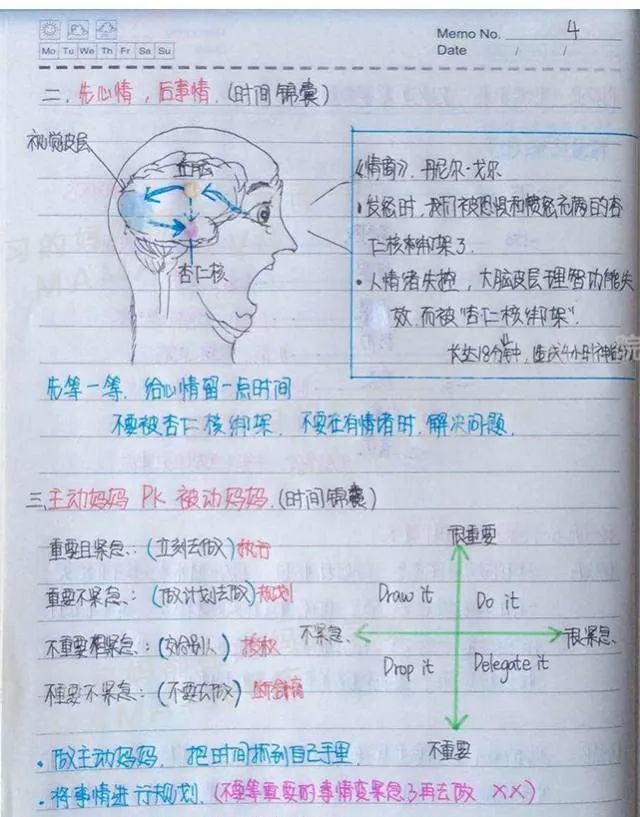 Memo No. 4
Mo Tu We Th Fr Sa Su
Date / /
二、先心情，后事情.(时间锦囊)
视觉皮层
丘脑
杏仁核
《情商》. 丹尼尔·戈尔
·发怒时，我们被恐惧和愤怒充满的杏
仁核绑架了.
·人情绪失控，大脑皮层理智功能失
效.而被"杏仁核绑架".
长达18分钟中，造成4小时神
先等一等，给心情留一点时间
不要被杏仁核绑架.不要在有情绪时.解决问题.
三.主动妈妈 PK 被动妈妈.(时间锦囊)
重要且紧急：(立刻去做)执行
重要不紧急：(做计划去做)规划
不重要紧急：(交给别人)授权
不重要不紧急：(不要去做)
很重要
Draw it
Do it
不紧急
很紧急
Drop it
Delegate it
不重要
·做主动妈妈，把时间抓到自己手里
·将事情进行规划.(不要等重要的事情变紧急了再去做 XX)